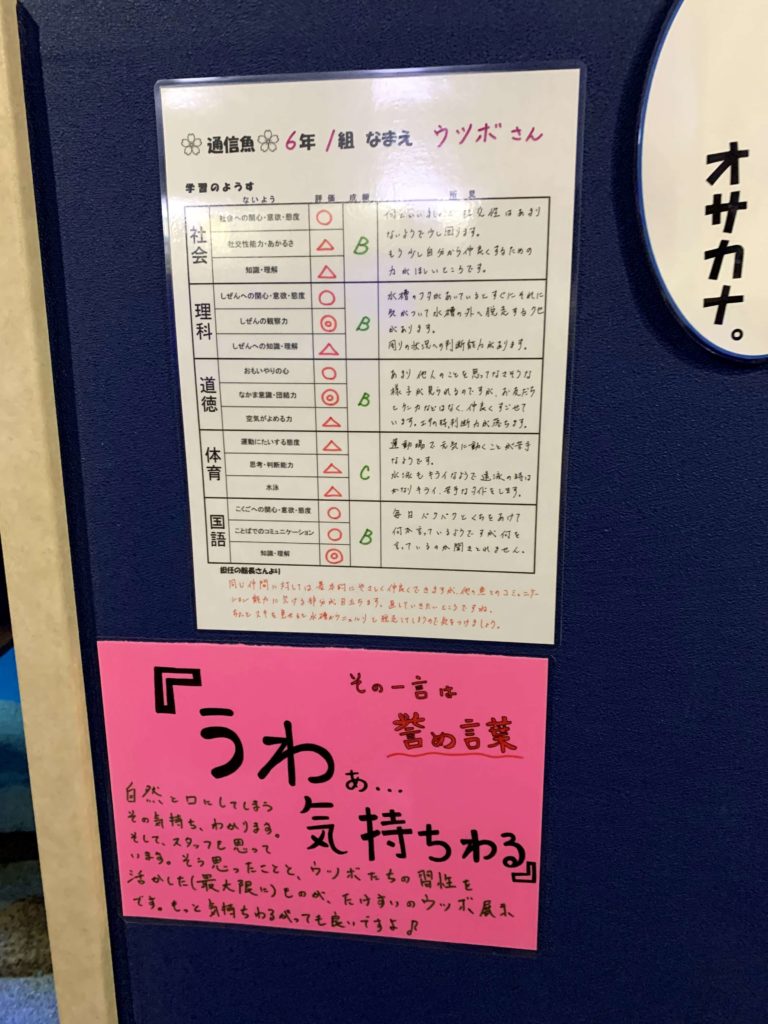 通信魚 6年 1組 なまえ ウツボさん
学習のようす
ないよう 評価 成績 所見
社会
社会への関心・意欲・態度 ○
社交性能力・あかるさ △
知識・理解 △
B
社交性はあまり
ないようで少し困ります。
もう少し自分から仲良くするための
力がほしいところです。
理科
しぜんへの関心・意欲・態度 ○
しぜんの観察力 ◎
しぜんへの知識・理解 △
B
水槽のフタがあいているとすぐにそれに
気がついて水槽の外へ脱走するクセ
があります。
周りの状況への判断能力があります。
道徳
おもいやりの心 ○
なかま意識・団結力 ◎
空気がよめる力 △
B
あまり他人のことを思ってなさそうな
様子が見られるのですが、お友だち
とケンカなどはなく、仲良くすごせて
います。エサの時、判断力が落ちます。
体育
運動にたいする態度 △
思考・判断能力 △
水泳 △
C
運動場で元気に動くことが苦手
なようです。
水泳もキライなようで遠泳の時は
かなりキライ、苦手なアピールをします。
国語
こくごへの関心・意欲・態度 ○
ことばでのコミュニケーション ○
知識・理解 ◎
B
毎日パクパクとくちをあけて
何か言っているようですが何を
言っているのか聞きとれません。
担任の館長さんより
同じ仲間に対しては基本的にやさしく仲良くできますが、他の魚とのコミュニケー
ション能力に欠ける部分が目立ちます。直していきたいところですね。
ちょっとスキを見せると水槽からニュルリと脱走してしまうので気をつけましょう。
その一言は
誉め言葉
『うわぁ...
気持ちわる』
自然と口にしてしまう
その気持ち、わかります。
そして、スタッフも思って
います。そう思ったことと、ウツボたちの習性を
活かした(最大限に)ものが、たけすいのウツボ展示
です。もっと気持ちわるがっても良いですよ♪
オサカナ。